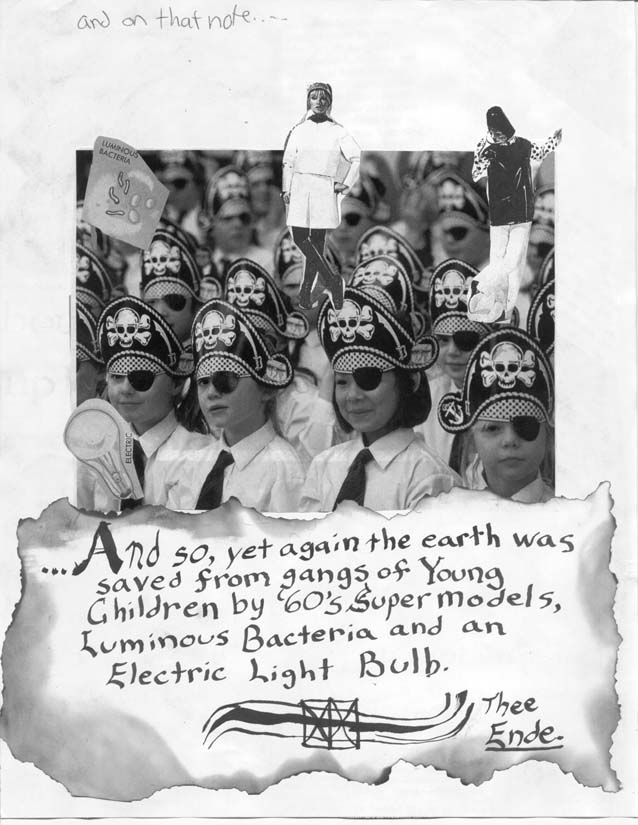 and on that note.....
LUMINOUS
BACTERIA
ELECTRIC
...And so, yet again the earth was
saved from gangs of Young
Children by '60's Supermodels,
Luminous Bacteria and an
Electric Light Bulb.
Thee
Ende.